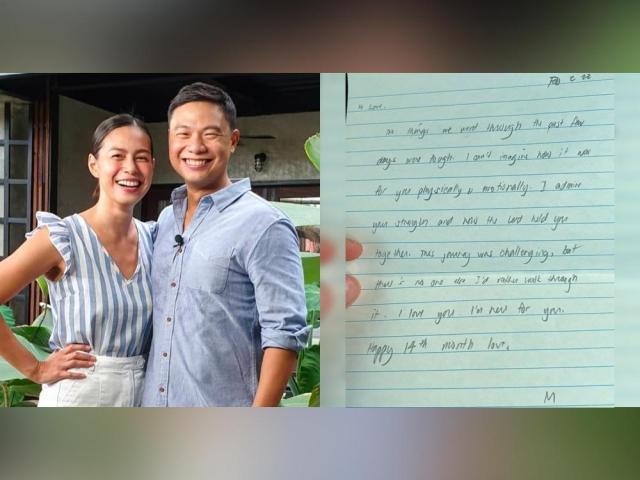 Feb 2 22
Hi Love,
The things we went through the past few
days were tough. I can't imagine how it was
for you physically & emotionally. I admire
your strength and how the Lord held you
together. This journey was challenging, but
there is no one else I'd rather walk through
it. I love you. I'm here for you.
Happy 14th month love,
M